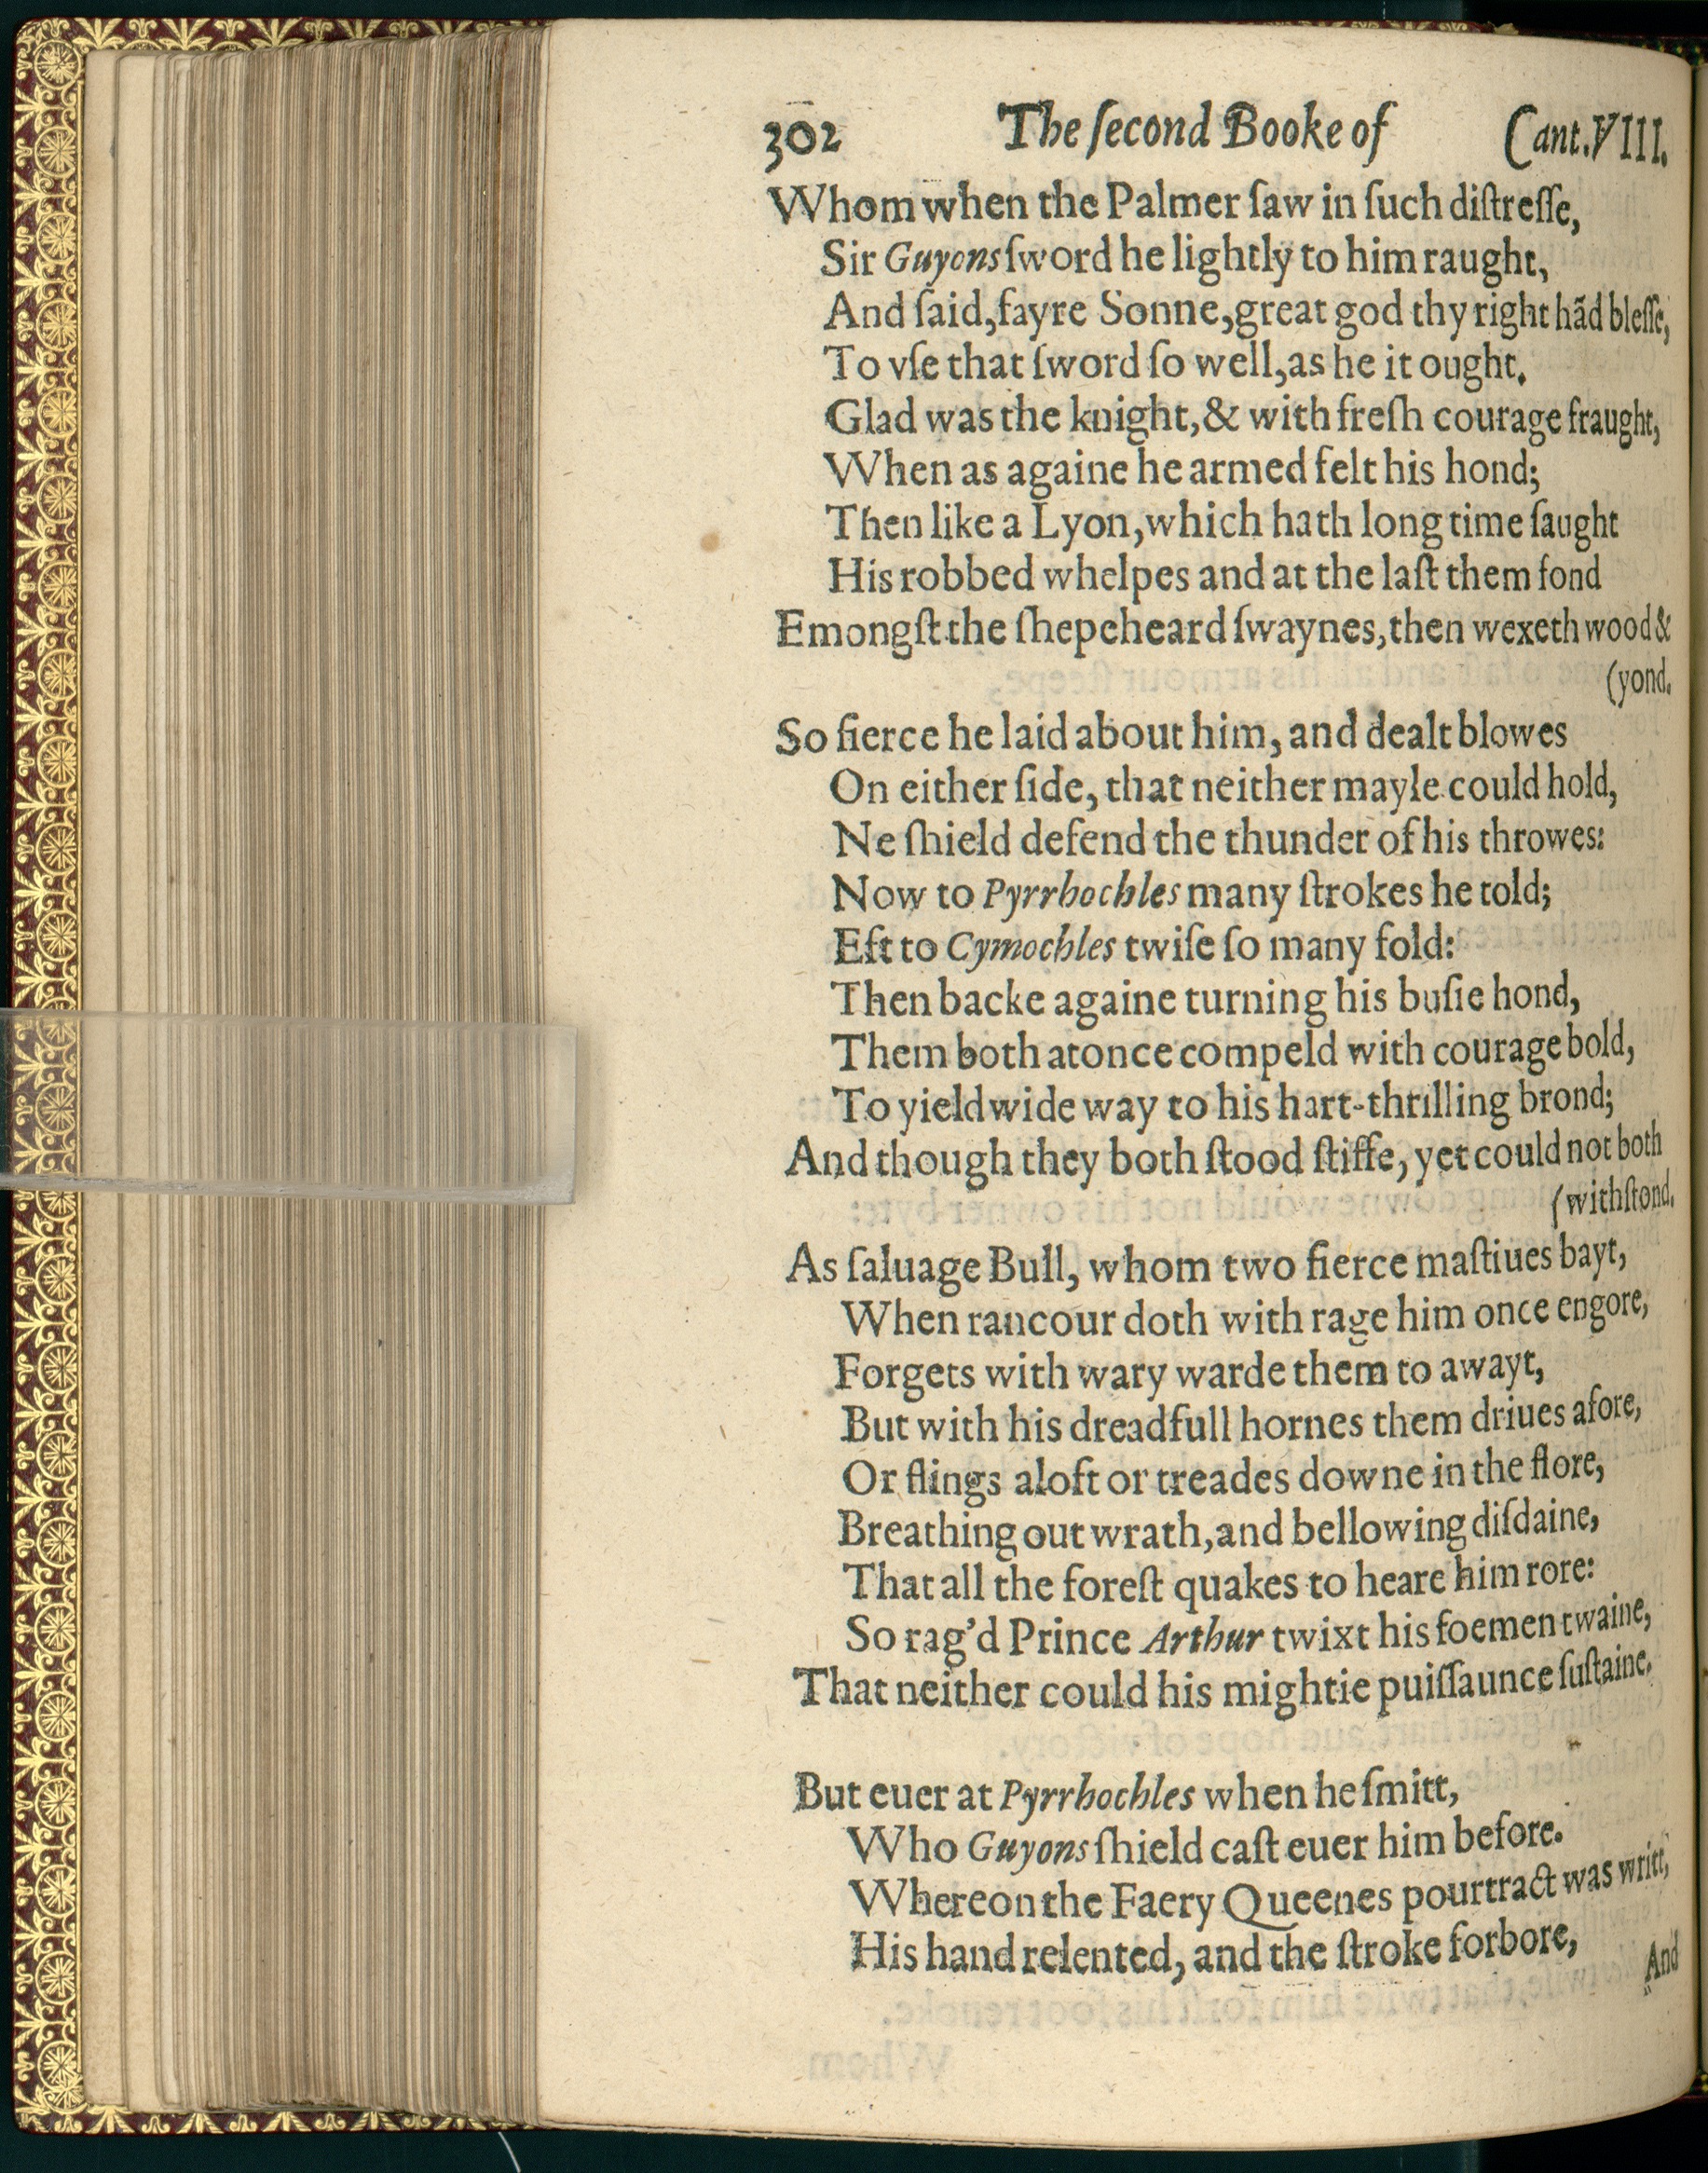 302 The ſecond Booke of Cant.VIII.
Whom when the Palmer ſaw in ſuch diſtreſſe,
Sir Guyons ſword he lightly to him raught,
And ſaid, fayre Sonne, great god thy right hãd bleſſe,
To vſe that ſword ſo well, as he it ought.
Glad was the knight, & with freſh courage fraught,
When as againe he armed felt his hond;
Then like a Lyon, which hath long time ſaught
His robbed whelpes and at the laſt them fond
Emongſt the ſhepeheard ſwaynes, then wexeth wood &
(yond.
So fierce he laid about him, and dealt blowes
On either ſide, that neither mayle could hold,
Ne ſhield defend the thunder of his throwes:
Now to Pyrrhochles many ſtrokes he told;
Eft to Cymochles twiſe ſo many fold:
Then backe againe turning his buſie hond,
Them both atonce compeld with courage bold,
To yield wide way to his hart-thrilling brond;
And though they both ſtood ſtiffe, yet could not both
(withſtond.
As ſaluage Bull, whom two fierce maſtiues bayt,
When rancour doth with rage him once engore,
Forgets with wary warde them to awayt,
But with his dreadfull hornes them driues afore,
Or flings aloft or treades downe in the flore,
Breathing out wrath, and bellowing diſdaine,
That all the foreſt quakes to heare him rore:
So rag'd Prince Arthur twixt his foemen twaine,
That neither could his mightie puiſſaunce ſuſtaine.
But euer at Pyrrhochles when he ſmitt,
Who Guyons ſhield caſt euer him before.
Whereon the Faery Queenes pourtract was writt,
His hand relented, and the ſtroke forbore,
And